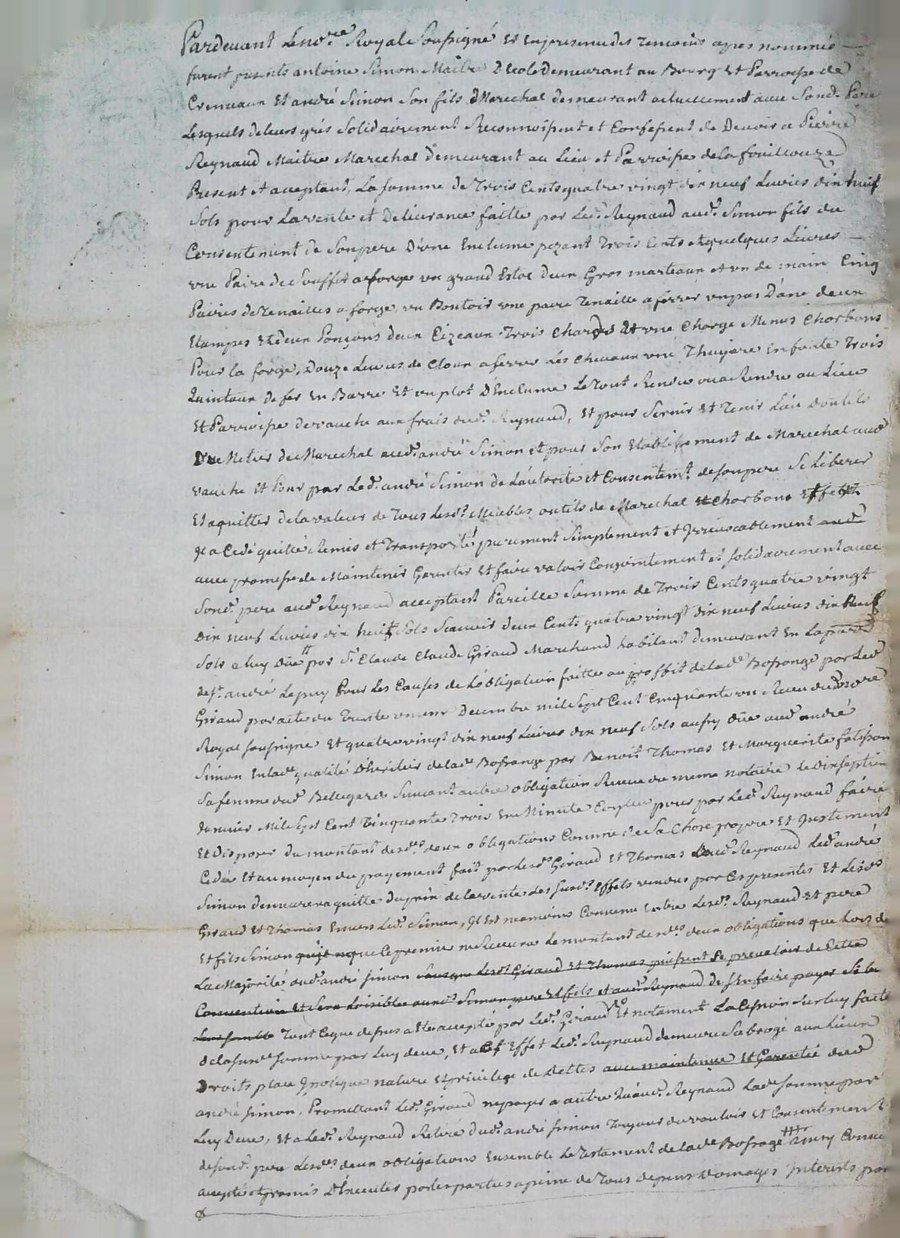 Pardevant Le no.re Royal Soussigné Et En presence des temoins apres nommés
furent presents antoine Simon Maitre d'Ecole demeurant au Bourg Et Parroisse de
Cremeaux Et andré Simon Son fils Marechal demeurant actuellement avec Sond. Pere
Lesquels de leurs grés Solidairement Reconnoissent et Confessent de Devoir a Pierre
Reynaud Maitre Marechal demeurant au Lieu et Parroisse de la fouillouze
Present et acceptant, La somme de Trois Cents quatre vingt dix neuf Livres dix huit
Sols pour La vente et Delivrance faitte par Led. Reynaud aud. Simon fils du
Consentement de Son pere D'une Enclume pezant Trois Cents et quelques Livres
une Paire de Soufflet a forge un grand Estoc deux Gros marteaux et un de main Cinq
Paires de Tenailles a forge un Boutoir une paire Tenaille a ferrer un pas D'ane deux
Etampes et deux Ponçons deux Cizeaux Trois Et une Charge Menus Charbons
Pour la forge, Douze Livres de Cloux a ferrer Les Chevaux une Thuyere En fonte Trois
Quintaux de fer En Barre Et un plot D'Enclume Le Tout Rendu ou a Rendre au Lieu
Et Parroisse de vauche aux frais dud. Reynaud, Et pour Servir Et Tenir Lieu D'outils
Du Metier de Marechal aud. andré Simon et pour Son Etablissement de Marechal aud.
vauche Et Pour par Led. andré Simon de L'autorité et Consentem.t de Son pere Se Liberer
Et aquitter de la valeur de Tous Lesd. Meubles outils de Marechal et Charbons Effets
Il a Cedé quitté Remis et Transporté purement Simplement et Irrevocablement
avec promesse de Maintenir Garentir Et faire valoir Conjointement et Solidairement avec
Sond. pere aud. Reynaud acceptant Pareille Somme de Trois Cents quatre vingt
Dix neuf Livres dix huit Sols Scavoir deux Cents quatre vingt dix neuf Livres dix neuf
Sols a luy Due par S.r Claude Claude Giraud Marchand habitant demeurant En La parr.
de S.t andré Lepuy Pour Les Causes de L'obligation faitte au proffit de lad. Bossrange par Led.
Giraud par acte du Trente un Decembre mil Sept Cent Cinquante un Receu du no.re
Royal Soussigne Et quatre vingt dix neuf Livres dix neuf Sols aussy Due aud. andré
Simon En lad. qualité D'heritier de lad. Bossrange par Benoit Thomas Et Marguerite
Sa femme dud. Bellegarde Suivant autre obligation Receue du meme notaire le dix sept
Janvier Mil Sept Cent Cinquante Trois En Minute pour par Led. Reynaud faire
Et Disposer du montant desd. deux obligations Comme de Sa Chose propre Et Justement
Cedée Et au moyen du payement fait par Lesd. Giraud Et Thomas aud. Reynaud Led. andré
Simon demeurera quitte du prix de la vente des Susd. Effets vendus par Ces presentes Et Lesd.
Giraud Et Thomas Envers Led. Simon, Il Est neamoins Convenu Entre Lesd. Reynaud Et pere
Et fils Simon que Le premier ne Recevra Le montant desd. deux obligations que Lors de
La Majorité dud. andré Simon Sans que Lesd. Giraud Et Thomas puissent Se prevaloir de Cette
Convention Et Sera Loisible auxd. Simon pere Et fils et aud. Reynaud de S'En faire payer
Tout Ce que dessus a Ete accepté par Led. Giraud Et notament La Cession Sur luy faitte
de la Susd. Somme par Luy deue, Et a Cet Effet Led. Reynaud demeure Subrogé aux Lieux
Droits place Ipoteque nature Et privilege de Dettes avec maintenue Et Garentie dud.
andré Simon, Promettant Led. Giraud ne payer a autre Reynaud Lad. Somme par
Luy Deue, Et a Led. Reynaud Retiré dud. andré Simon Toujours du vouloir Et Consentement
de Sond. pere Lesd. deux obligations Ensemble Le Testament de lad. Bossrange
accepté et promis D'Executer par les parties a peine de Tous depens Domages Interests par